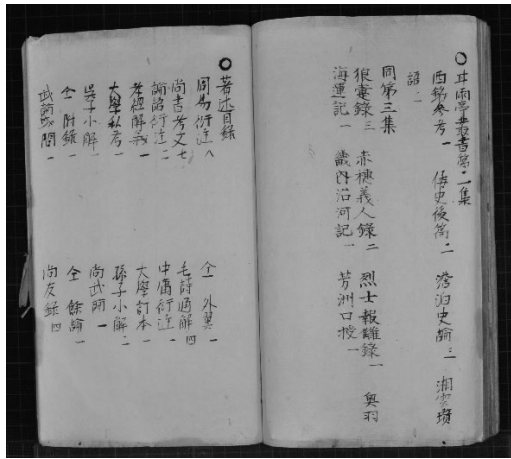 ○甘雨亭叢書第二集
西銘參考一 倭史後篇二 澹泊史論二 湘雲瓚
語一
同第三集
狼疐錄三 赤穗義人錄二 烈士報讎錄一 奥羽
海運記一 畿內治河記一 芳洲口授一
○著述目錄
周易衍述八 仝外翼一
尚書考文七 毛詩通解四
論語衍述二 中庸衍述一
孝經解義一 大學訂本一
大學私考一 孫子小解二
吳子小解一 尚武 一
仝附錄一 仝餘論一
武 或問一 尚友錄四